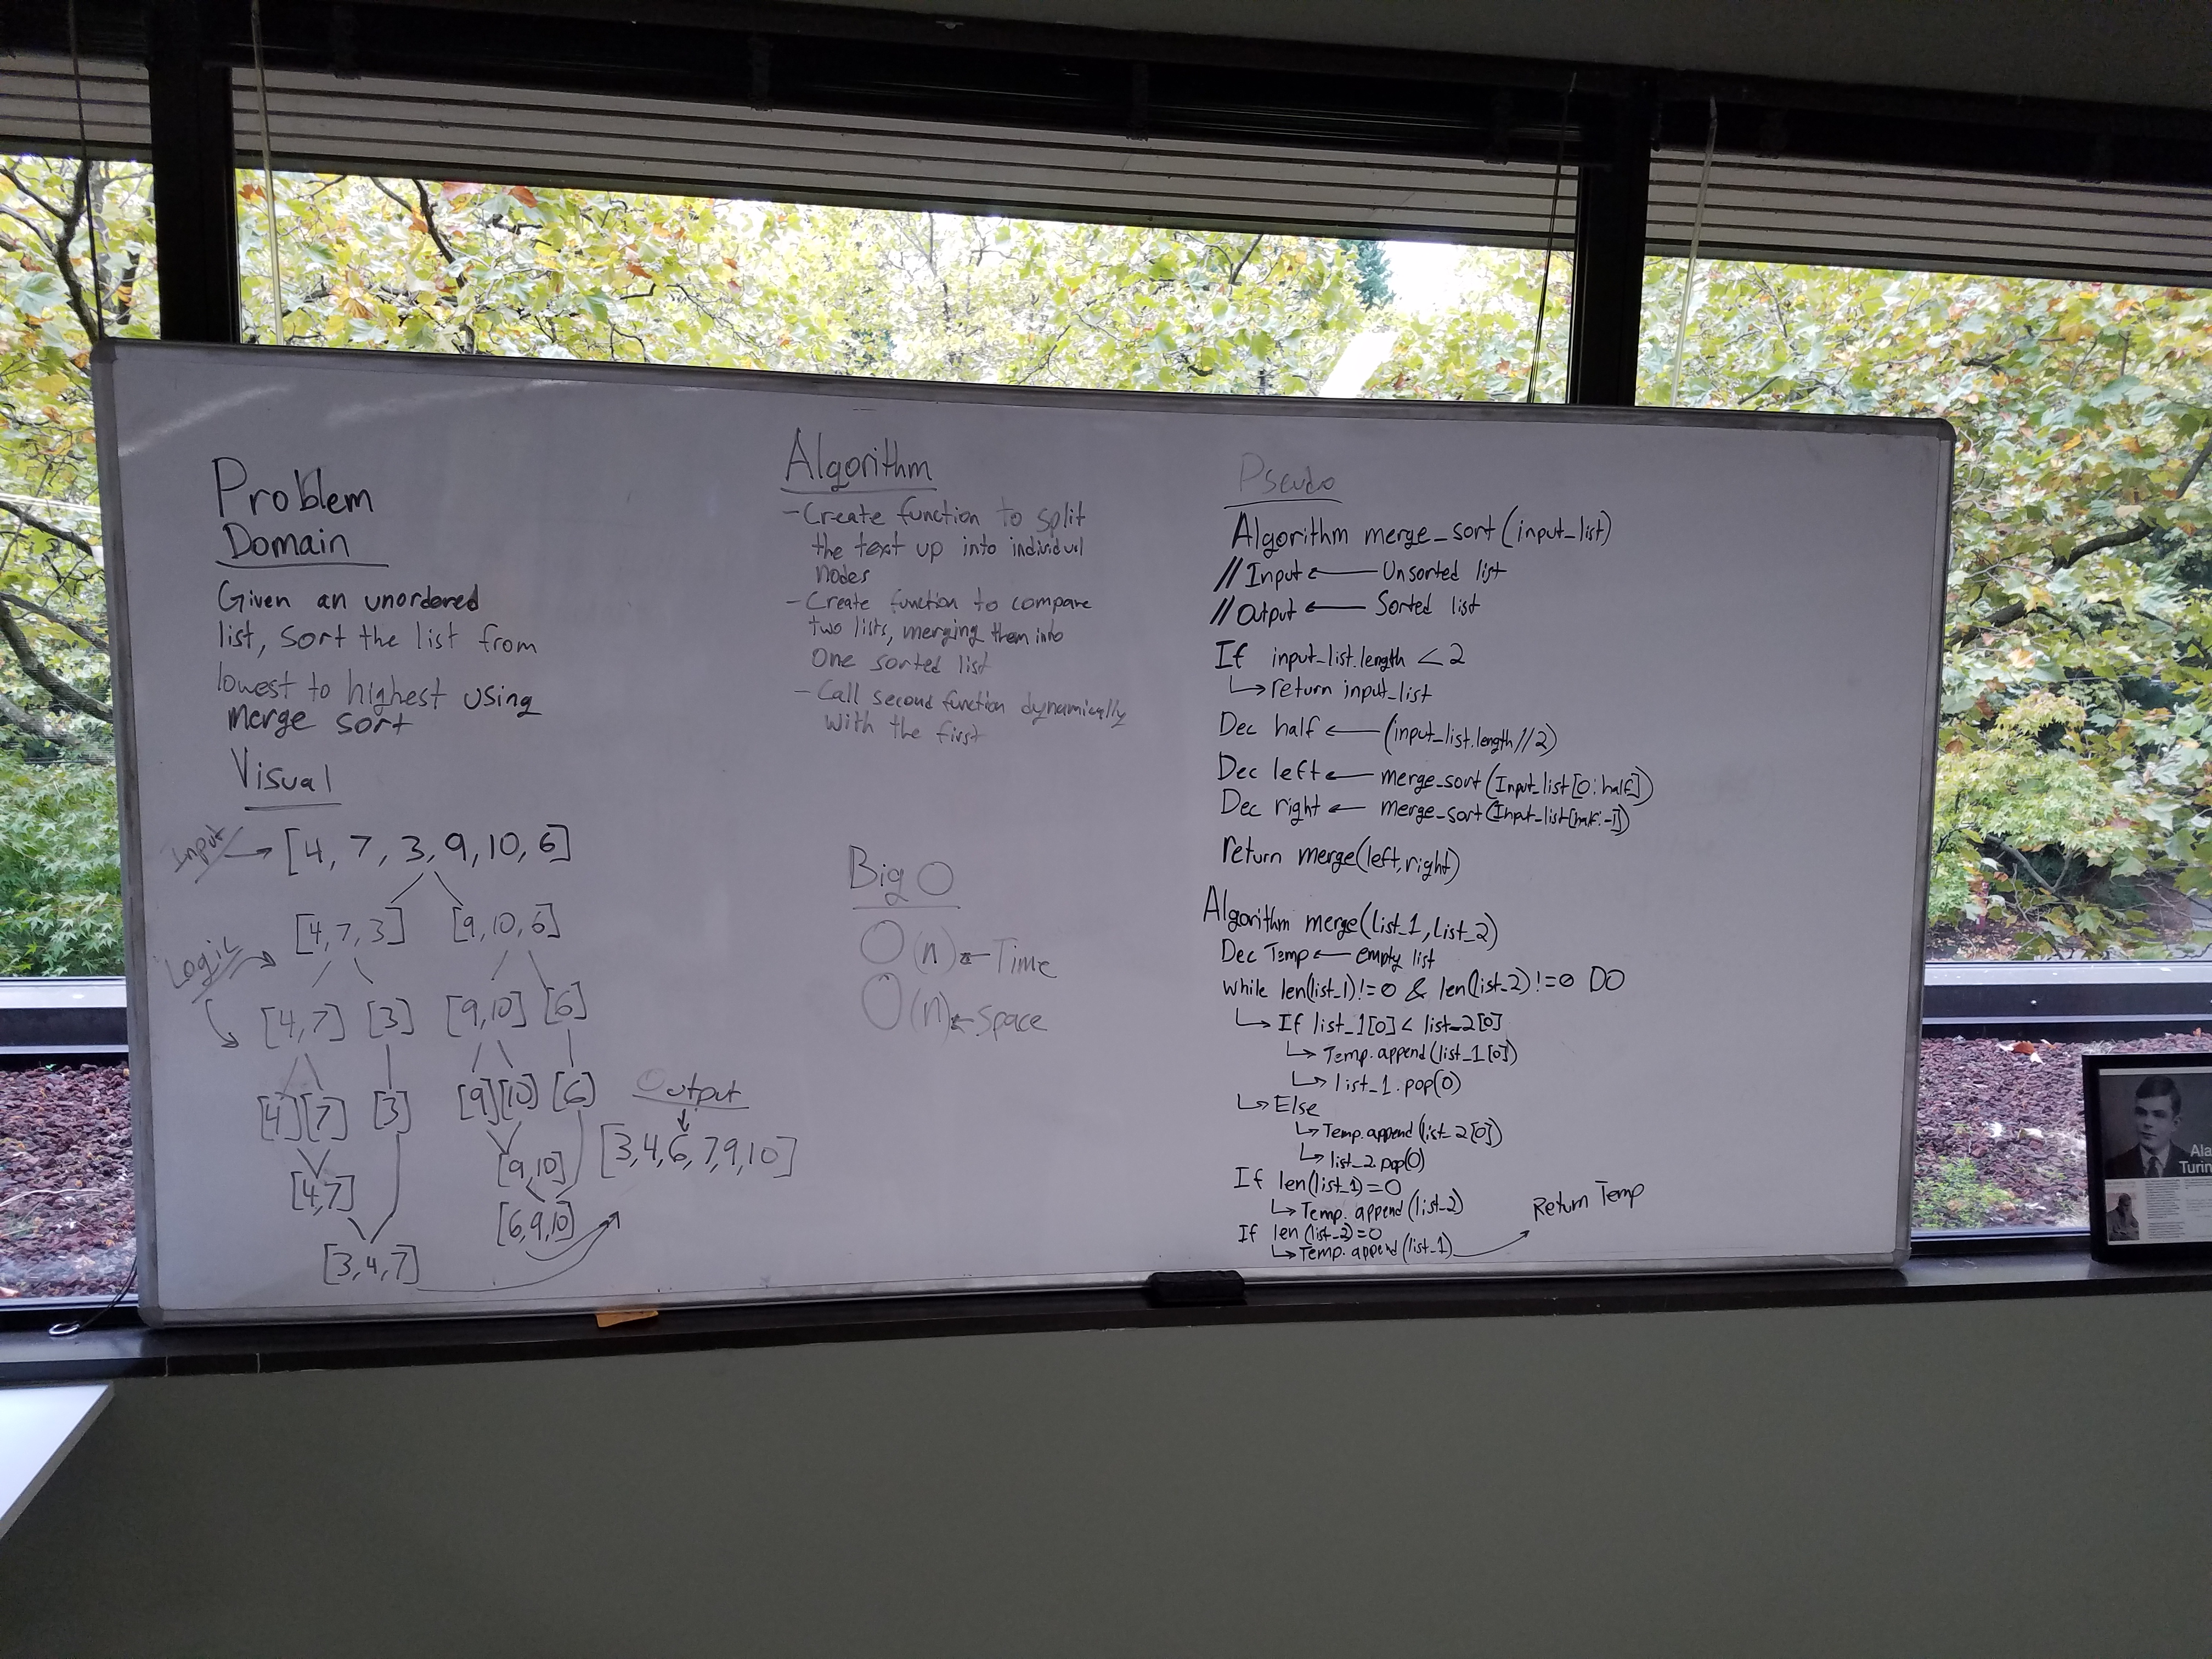 Problem
Domain
Given an unordered
list, sort the list from
lowest to highest using
merge sort
Visual
Input → [4, 7, 3, 9, 10, 6]
[4, 7, 3] [9, 10, 6]
Logic
[4, 7] [3] [9, 10] [6]
[4] [7] [3] [9] [10] [6]
[4, 7] [9, 10]
[6, 9, 10]
[3, 4, 7]
Output
[3, 4, 6, 7, 9, 10]
Algorithm
- Create function to split
the text up into individual
nodes
- Create function to compare
two lists, merging them into
One sorted list
- Call second function dynamically
with the first
Big O
O(n) ← Time
O(n) ← Space
Pseudo
Algorithm merge_sort(input_list)
// Input ← Unsorted list
// Output ← Sorted list
If input_list.length < 2
↳ return input_list
Dec half ← (input_list.length//2)
Dec left ← merge_sort(Input_list[0:half])
Dec right ← merge_sort(Input_list[half:-1])
return merge(left, right)
Algorithm merge(list_1, list_2)
Dec Temp ← empty list
while len(list_1)!=0 & len(list_2)!=0 DO
↳ If list_1[0] < list_2[0]
↳ Temp.append(list_1[0])
↳ list_1.pop(0)
↳ Else
↳ Temp.append(list_2[0])
↳ list_2.pop(0)
If len(list_1)=0
↳ Temp.append(list_2)
If len(list_2)=0
↳ Temp.append(list_1)
Return Temp
Ala
Turin